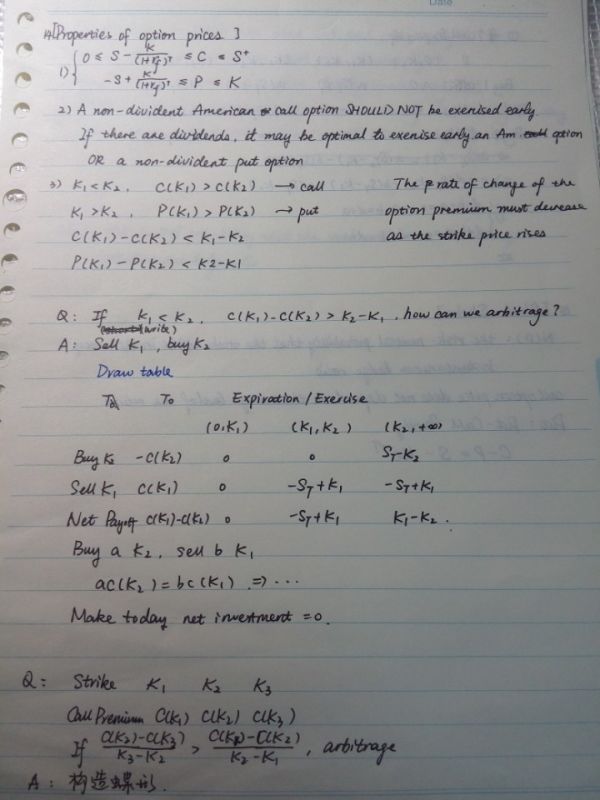 [Properties of option prices]
1) { 0 ≤ S - K/(1+rf)^T ≤ C ≤ S
-S + K/(1+rf)^T ≤ P ≤ K
2) A non-divident American call option SHOULD NOT be exercised early
If there are dividends, it may be optimal to exercise early an Am option
OR a non-divident put option
3) K1 < K2, C(K1) > C(K2) → call The rate of change of the
K1 > K2, P(K1) > P(K2) → put option premium must decrease
C(K1)-C(K2) < K1-K2 as the strike price rises
P(K1)-P(K2) < K2-K1
Q: If K1 < K2, C(K1)-C(K2) > K2-K1, how can we arbitrage?
(write)
A: Sell K1, buy K2
Draw table
T0 Expiration / Exercise
(0,K1) (K1,K2) (K2,+∞)
Buy K2 -C(K2) 0 0 ST-K2
Sell K1 C(K1) 0 -ST+K1 -ST+K1
Net Payoff C(K1)-C(K2) 0 -ST+K1 K1-K2.
Buy a K2, sell b K1
aC(K2) = bC(K1) ⇒ ...
Make today net investment = 0.
Q: Strike K1 K2 K3
Call Premium C(K1) C(K2) C(K3)
If (C(K2)-C(K3))/(K3-K2) > (C(K1)-C(K2))/(K2-K1), arbitrage
A: 构造蝶形.